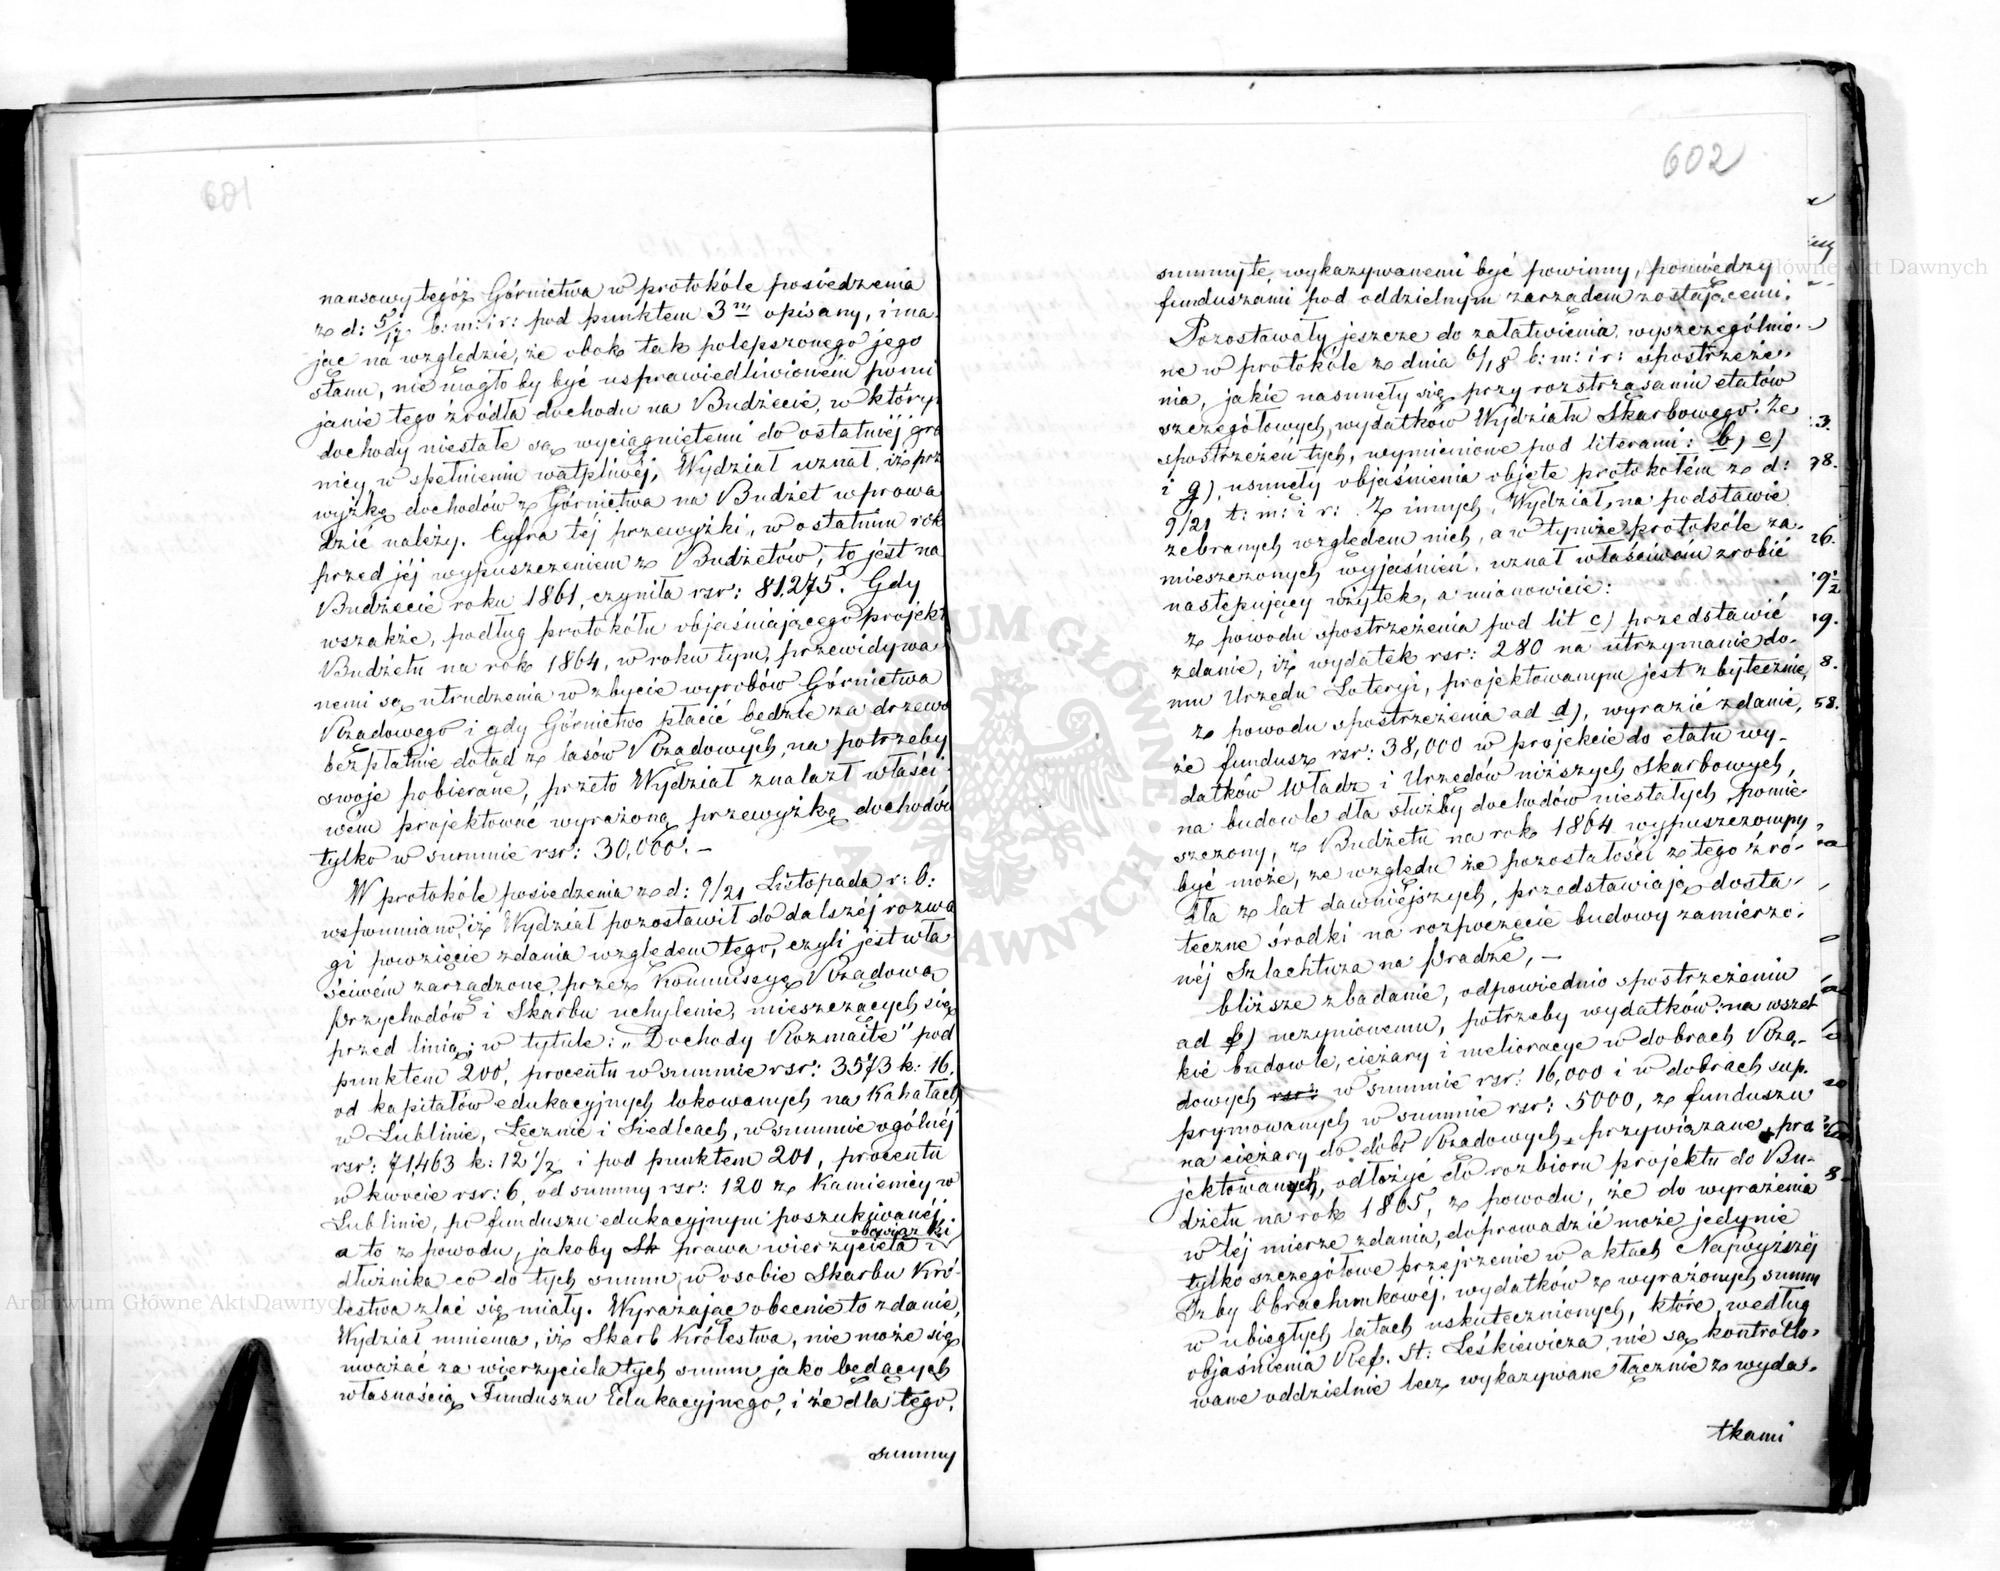 nansowy tegóż Górnictwa w protokóle posiedzenia
z d: 5/17 b: m: i r: pod punktem 3m opisany, i ma
jąc na względzie, że obok tak polepszonego jego
stanu, nie mogło by być usprawiedliwioném pomi
janie tego źródła dochodu na Budżecie, w który
dochody niestałe są wyciągniętemi do ostatniéj gra
nicy w spełnieniu wątpliwéj, Wydział uznał, iż prz
wyżkę dochodów z Górnictwa na Budżet wprowa
dzić należy. Cyfra téj przewyżki, w ostatnim rok
przed jéj wypuszczeniem z Budżetów, to jést na
Budżecie roku 1861, czyniła rsr: 81,275. Gdy
wszakże, podług protokółu objaśniającego projekt
Budżetu na rok 1864, w roku tym, przewidywa
nemi są utrudzenia w zbycie wyrobów Górnictwa
Rządowego i gdy Górnictwo płacić będzie za drzewo
bezpłatnie dotąd z lasów Rządowych, na potrzeby
swoje pobierane, przeto Wydział znalazł właści
wém projektować wyrażoną przewyżkę dochodów
tylko w summie rsr: 30,000. –
W protokóle posiedzenia z d: 9/21 Listopada r: b:
wspomniano, iż Wydział pozostawił do dalszéj rozwa
gi powzięcie zdania względem tego, czyli jest wła
ściwém zarządzone przez Kommissyę Rządową
Przychodów i Skarbu uchylenie, mieszczących się
przed linią; w tytule: „Dochody Rozmaite" pod
punktem 200, procentu w summie rsr: 3573 k: 16,
od kapitałów edukacyjnych lokowanych na Kahałach
w Lublinie, Łęcznie i Siedlcach, w summie ogólnéj
rsr: 71,463 k: 12 1/2 i pod punktem 201, procentu
w kwocie rsr: 6, od summy rsr: 120 z Kamienicy w
Lublinie, po funduszu edukacyjnym poszukiwanéj,
obowiązki
a to z powodu, jakoby Sk prawa wierzyciela i
dłużnika co do tych summ, w osobie Skarbu Kró-
lestwa zlać się miały. Wyrażając obecnie to zdanie,
Wydział mniema, iż Skarb Królestwa, nie może się
uważać za wierzyciela tych summ, jako będących
własnością Funduszu Edukacyjnego, i że dla tego,
summy
602
summy te wykazywanemi być powinny, pomiędzy
funduszami pod oddzielnym zarządem zostającemi.
Pozostawały jeszcze do załatwienia, wyszczególnio-
ne w protokóle z dnia 6/18 b: m: i r: spostrzeże-
nia, jakie nasunęły się przy rozstrząsaniu etatów
szczegółowych, wydatków Wydziału Skarbowego. Ze
spostrzeżeń tych, wymienione pod literami: b) e)
i g), usunęły objaśnienia objęte protokółem z d:
9/21 t: m: i r: Z innych, Wydział, na podstawie
zebranych względem nich, a w tymże protokóle za-
mieszczonych wyjaśnień, uznał właściwém zrobić
następujący użytek, a mianowicie:
z powodu spostrzeżenia pod lit c) przedstawić
zdanie, iż wydatek rsr: 280 na utrzymanie do-
mu Urzędu Loteryi, projektowanym jest zbytecznie,
z powodu spostrzeżenia ad d), wyrazić zdanie,
że fundusz rsr: 38,000 w projekcie do etatu wy-
datków Władz i Urzędów niższych Skarbowych,
na budowle dla służby dochodów niestałych, pomie-
szczony, z Budżetu na rok 1864 wypuszczonym
być może, ze względu że pozostałości z tego źró-
dła z lat dawniejszych, przedstawiają dosta-
teczne środki na rozpoczęcie budowy zamierzo-
néj Szlachtuza na Pradze, –
bliższe zbadanie, odpowiednio spostrzeżeniu
ad f) uczynionemu, potrzeby wydatków: na wszel
kié budowle, ciężary i melioracye w dobrach Rzą-
dowych rsr: w summie rsr: 16,000 i w dobrach sup-
prymowanych w summie rsr: 5000, z funduszu
na ciężary do dóbr Rządowych przywiązane, pro
jektowanych, odłożyć do rozbioru projektu do Bu-
dżetu na rok 1865, z powodu, że do wyrażenia
w téj mierze zdania, doprowadzić może jedynie
tylko szczegółowe przejrzenie w aktach Najwyższéj
Izby Obrachunkowéj, wydatków z wyrażonych summ
w ubiegłych latach uskutecznionych, które według
objaśnienia Ref. St: Leśkiewicza, nie są kontrollo-
wane oddzielnie lecz wykazywane łącznie z wyda-
tkami
3.
78.
26.
9 1/2
19.
8.
58.
8
Archiwum Główne Akt Dawnych
Archiwum Główne Akt Dawnych
ARCHIWUM GŁÓWNE AKT DAWNYCH